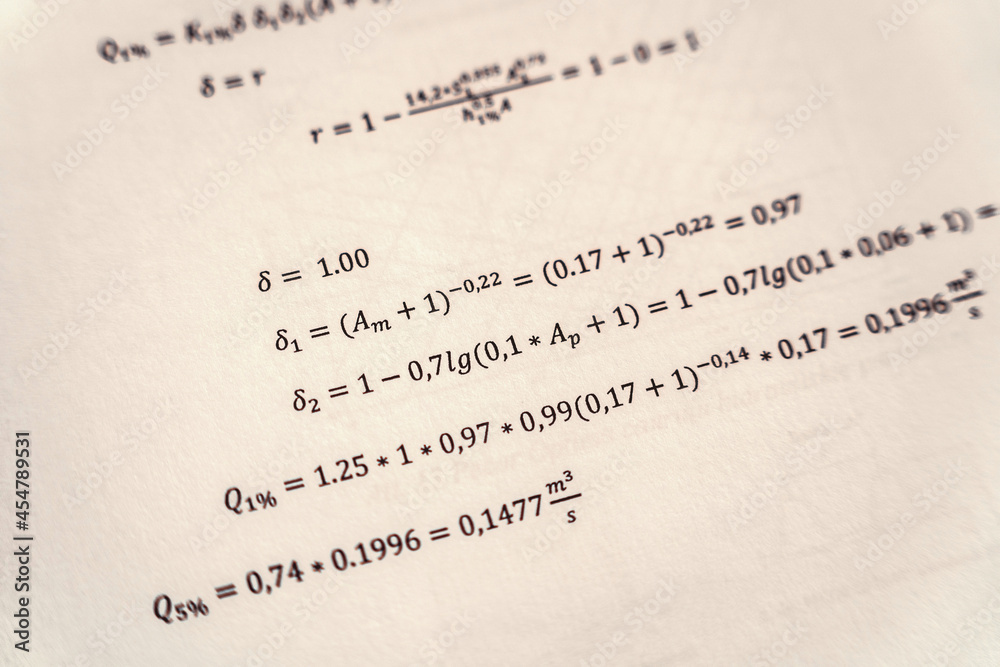 Q₁% = K₁%δ δ₁δ₂(A + 1)
δ = r
r = 1 − 14,2 * S / h₁%^0.5 A = 1 − 0 = 1
δ = 1.00
δ₁ = (Aₘ + 1)^−0,22 = (0.17 + 1)^−0,22 = 0,97
δ₂ = 1 − 0,7lg(0,1 * Aₚ + 1) = 1 − 0,7lg(0,1 * 0,06 + 1) =
Q₁% = 1.25 * 1 * 0,97 * 0,99(0,17 + 1)^−0,14 * 0,17 = 0,1996 m³/s
Q₅% = 0,74 * 0.1996 = 0,1477 m³/s
Adobe Stock | #454789531